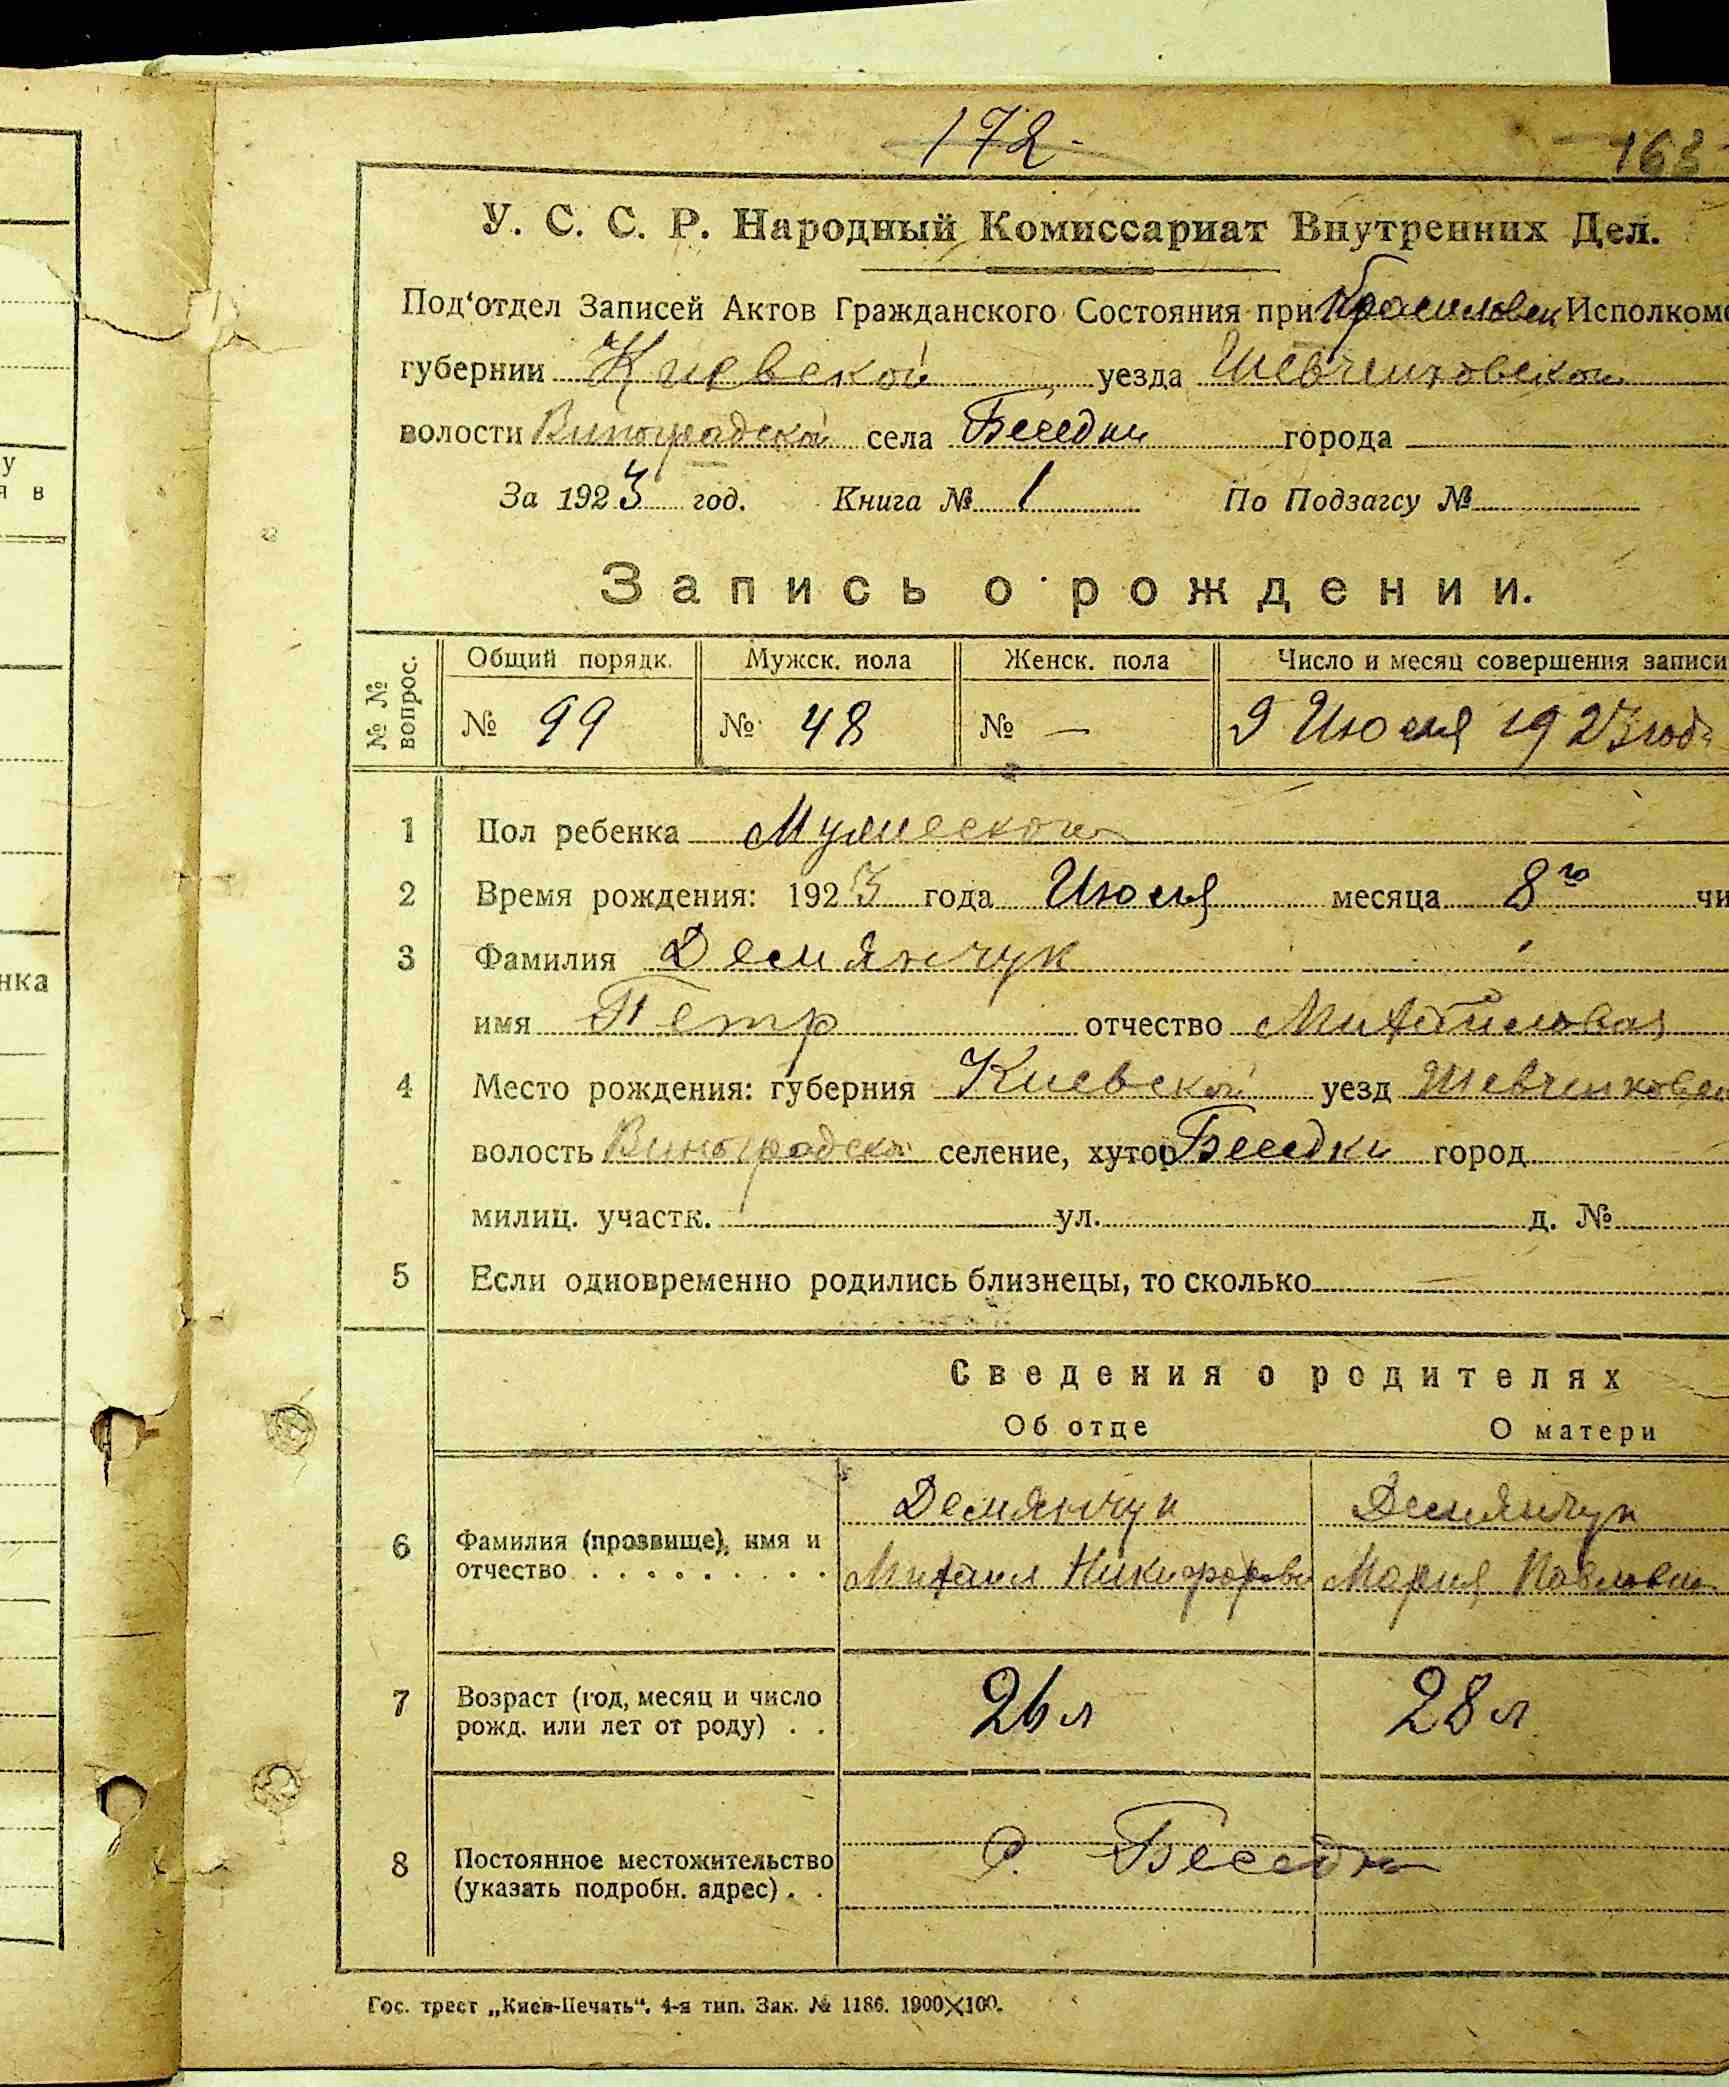 172
163
У. С. С. Р. Народный Комиссариат Внутренних Дел.
Под‘отдел Записей Актов Гражданского Состояния при Исполком
губернии Киевской уезда Шевченковской
волости Виноградской села Беседки города
За 1923 год. Книга № 1 По Подзагсу №
Запись о рождении.
№ № вопрос.
Общий порядк. Мужск. пола Женск. пола Число и месяц совершения записи
№ 99 № 48 № — 9 Июля 1923 года
1 Пол ребенка Мужеской
2 Время рождения: 1923 года Июля месяца 8го чи
3 Фамилия Демянчук
имя Петр отчество Михайловая
4 Место рождения: губерния Киевской уезд Шевченковск
волость Виноградской селение, хутор Беседки город
милиц. участк. ул. д. №
5 Если одновременно родились близнецы, то сколько
Сведения о родителях
Об отце О матери
Демянчук Демянчук
6 Фамилия (прозвище), имя и
отчество Михаил Никифорови Мария Павловна
7 Возраст (год, месяц и число
рожд. или лет от роду) . . 26 л 28 л
8 Постоянное местожительство
(указать подробн. адрес) . . с. Беседки
Гос. трест „Киев-Печать“. 4-я тип. Зак. № 1186. 1900×100.
у
я в
нка